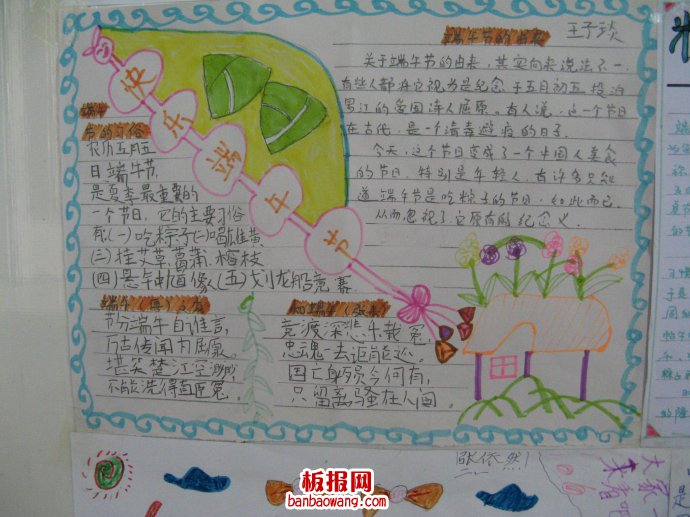 快乐端午节
端午节的由来
王予琰
关于端午节的由来,其实向来说法不一,
有些人都将它视为是纪念于五月初五投汨
罗江的爱国诗人屈原。有人说,这一个节日
在古代,是一个清毒避疫的日子。
今天,这个节日变成了一个中国人美食
的节日,特别是年轻人,有许多只知
道端午节是吃粽子的节日,如此而已,
从而忽视了它原有的纪念义。
端午
节的习俗
农历五月五
日端午节,
是夏季最重要的
一个节日,它的主要习俗
有(一)吃粽子(二)喝雄黄
(三)挂艾草菖蒲、梅枝
(四)悬钟馗像(五)划龙船竞赛
端午(唐)文秀
节分端午自谁言,
万古传闻为屈原。
堪笑楚江空渺渺,
不能洗得直臣冤。
和端午(张耒)
竞渡深悲千载冤,
忠魂一去讵能还。
国亡身殒今何有,
只留离骚在人间。
张依然
大家
来看吧
板报网
banbaowang.com